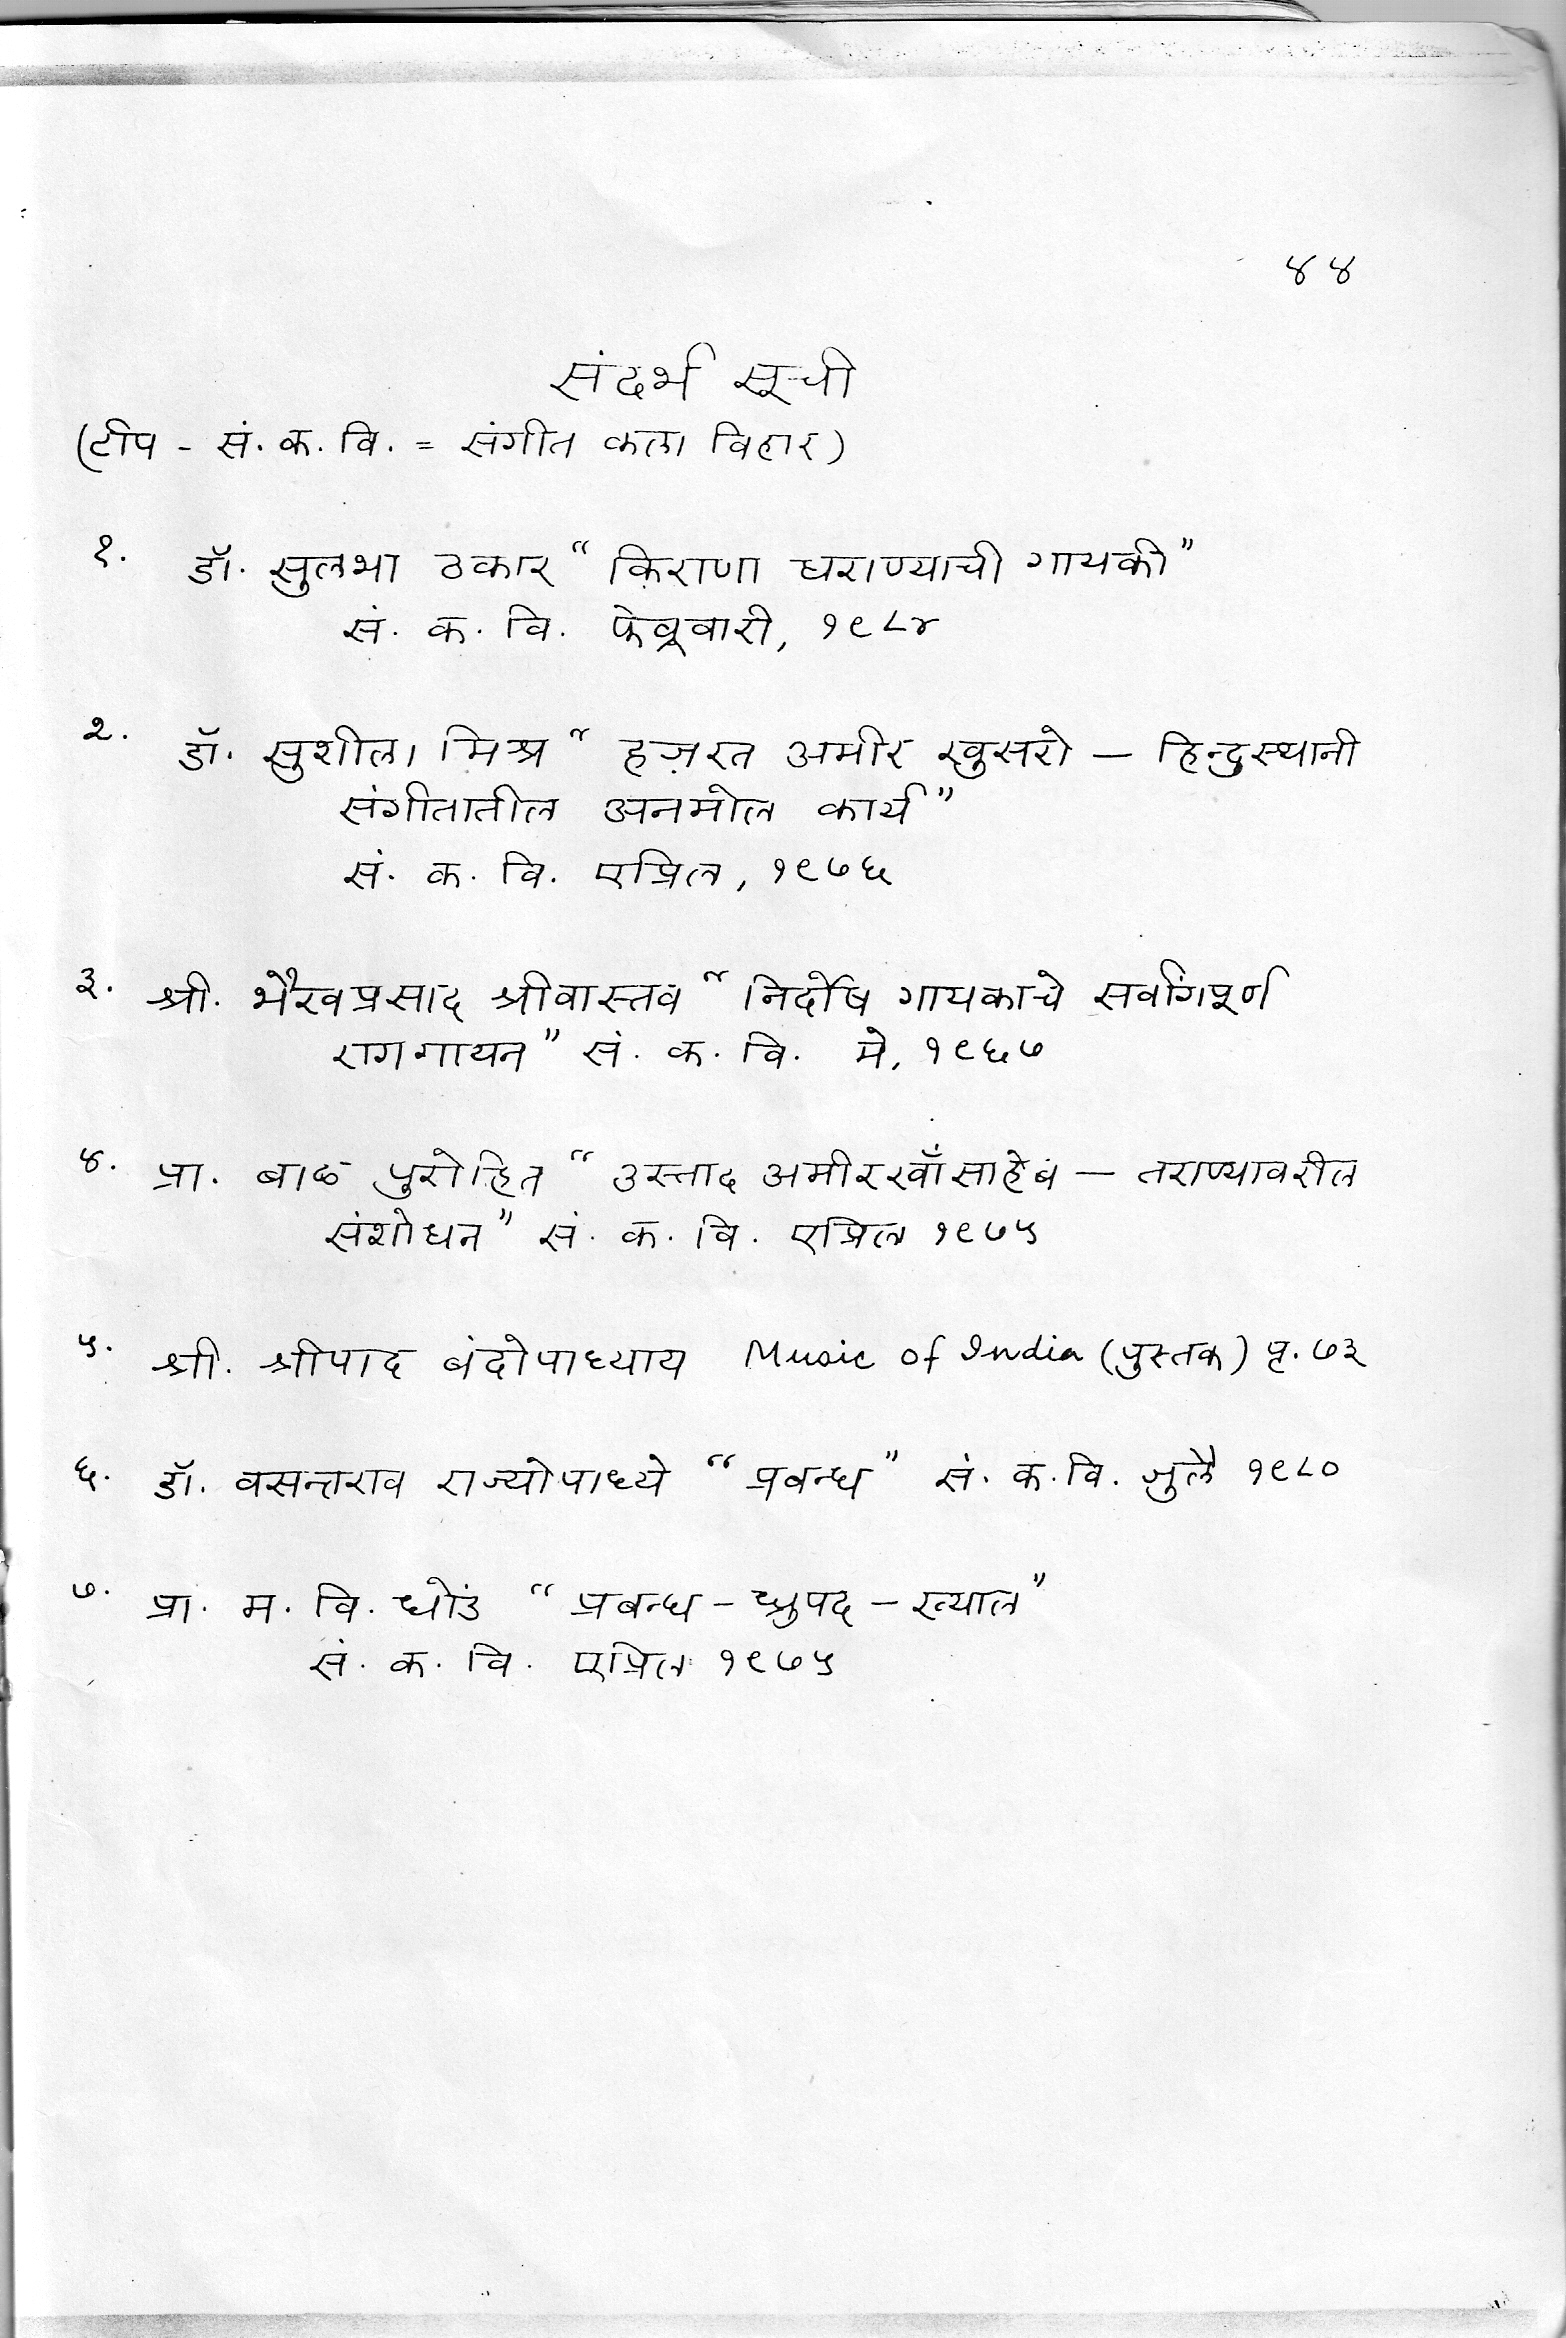 ४४
संदर्भ सूची
(टीप - सं. क. वि. = संगीत कला विहार)
१. डॉ. सुलभा ठकार “किराणा घराण्याची गायकी”
सं. क. वि. फेब्रूवारी, १९८४
२. डॉ. सुशीला मिश्र “हज़रत अमीर खुसरो — हिन्दुस्थानी
संगीतातील अनमोल कार्य”
सं. क. वि. एप्रिल, १९७६
३. श्री. भैरवप्रसाद श्रीवास्तव “निर्दोष गायकाचे सर्वांगपूर्ण
रागगायन” सं. क. वि. मे, १९६७
४. प्रा. बाळ पुरोहित “उस्ताद अमीरखाँसाहेब — तराण्यावरील
संशोधन” सं. क. वि. एप्रिल १९७५
५. श्री. श्रीपाद बंदोपाध्याय Music of India (पुस्तक) पृ. ७३
६. डॉ. वसन्तराव राज्योपाध्ये “प्रबन्ध” सं. क. वि. जुलै १९८०
७. प्रा. म. वि. धोंड “प्रबन्ध - ध्रुपद - ख्याल”
सं. क. वि. एप्रिल १९७५